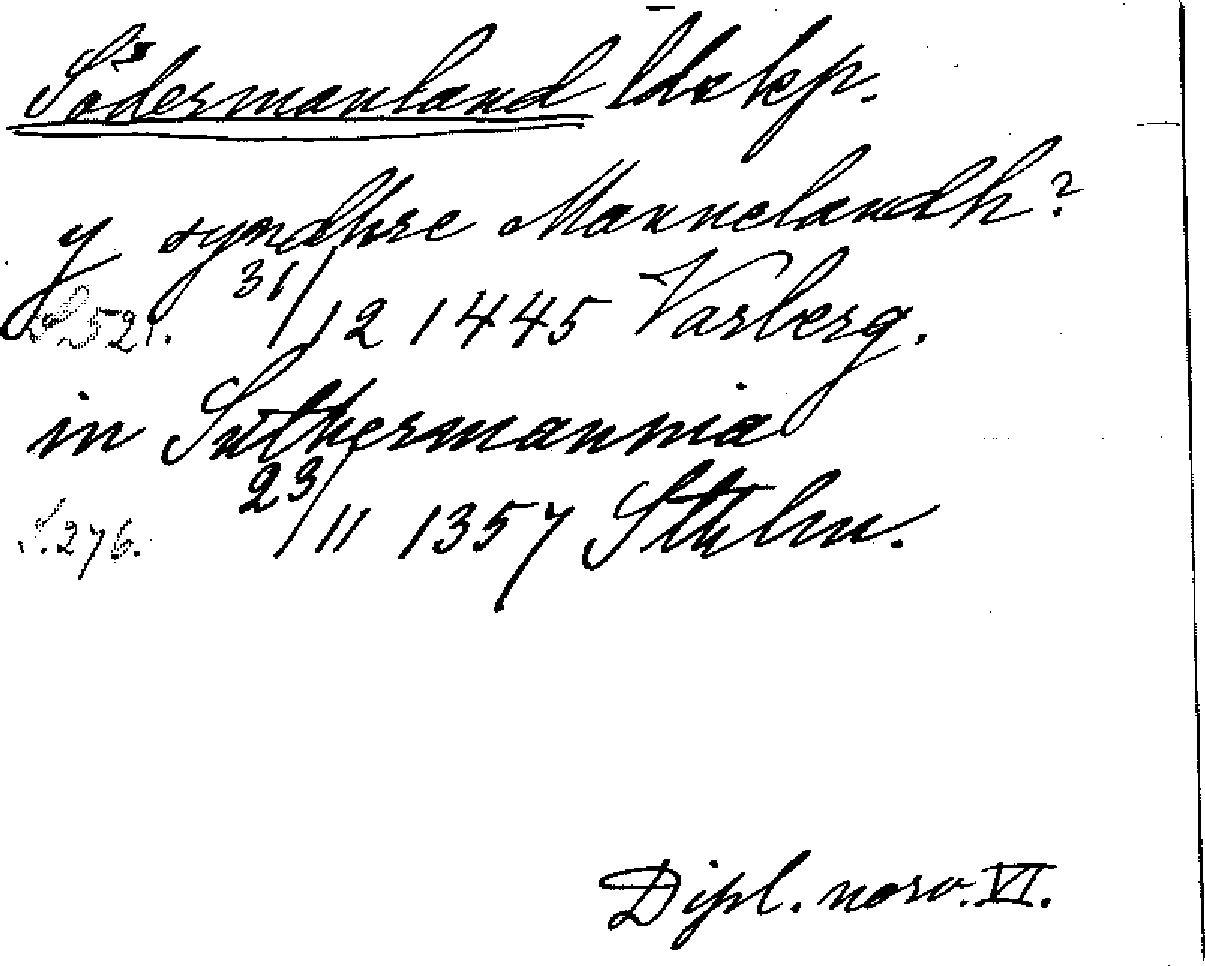 Södermanland ldskp.
y syndhre Mannelandh?
S. 521. 31/12 1445 Varberg.
in Suthermannia
S. 276. 23/11 1357 Sthlm.
Dipl. norv. VI.